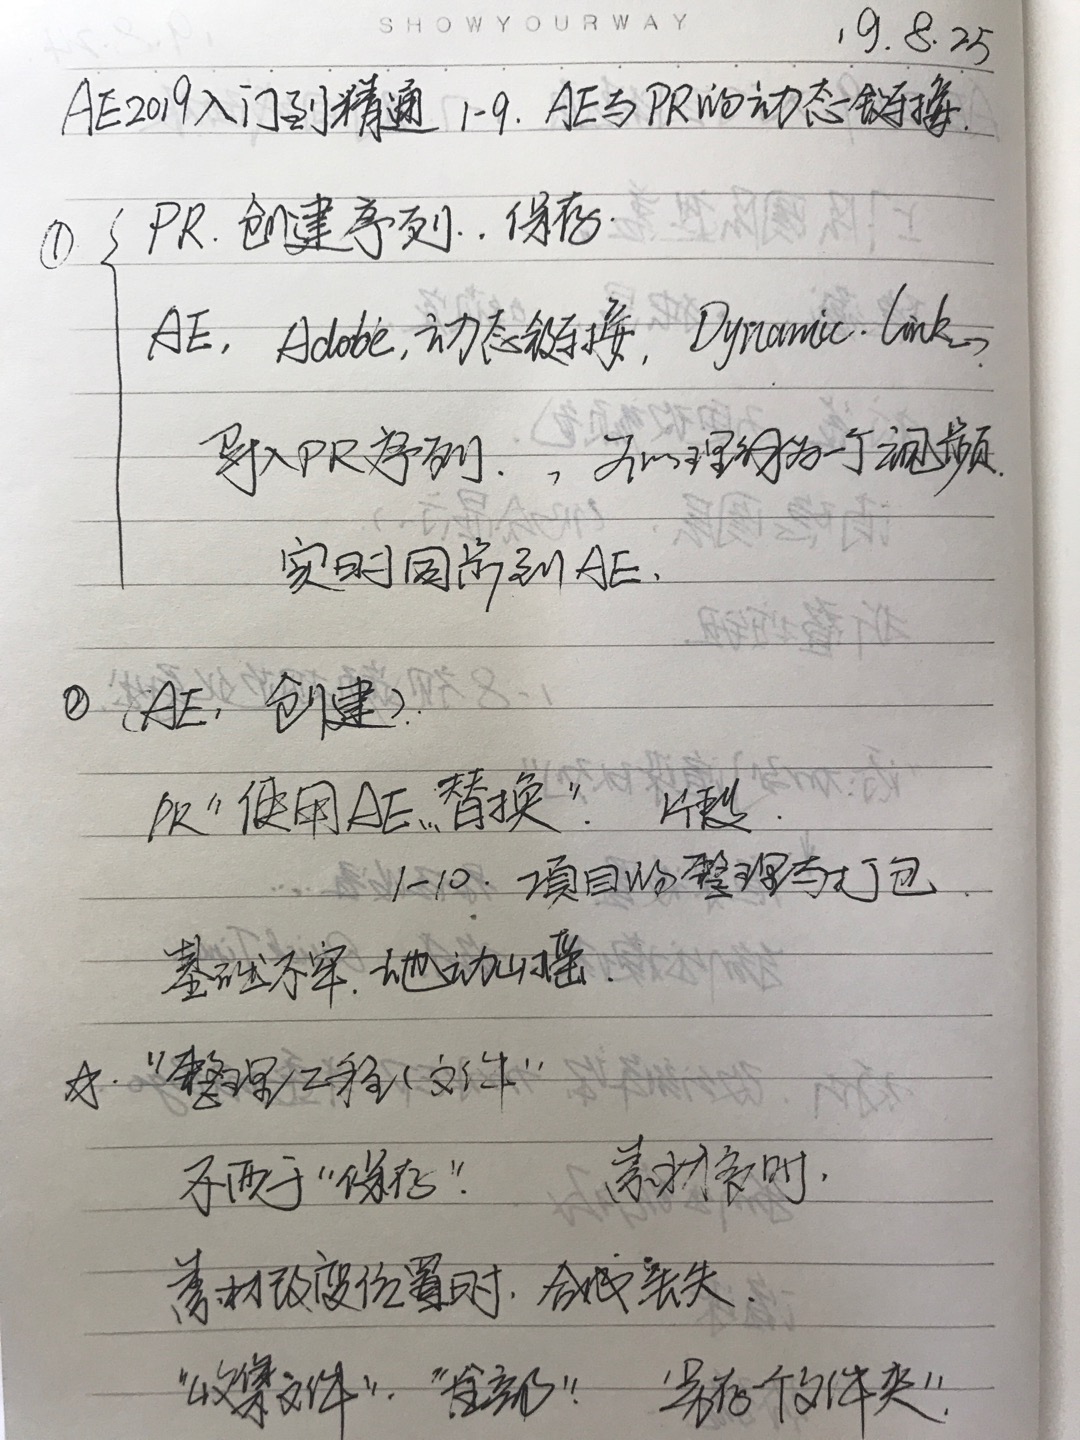 SHOWYOURWAY
19.8.25
AE2019入门到精通 1-9. AE与PR的动态链接.
① PR.创建序列..保存.
AE, Adobe,动态链接, Dynamic.Link
导入PR序列.,可以理解为一个视频.
实时同步到AE.
② (AE,创建).
PR"使用AE...替换".
1-10.项目的整理与打包.
基础不牢.地动山摇.
☆."整理工程(文件"
不同于"保存". 素材多时,
素材改变位置时.合成丢失.
"收集文件"."全部". 另存个文件夹".